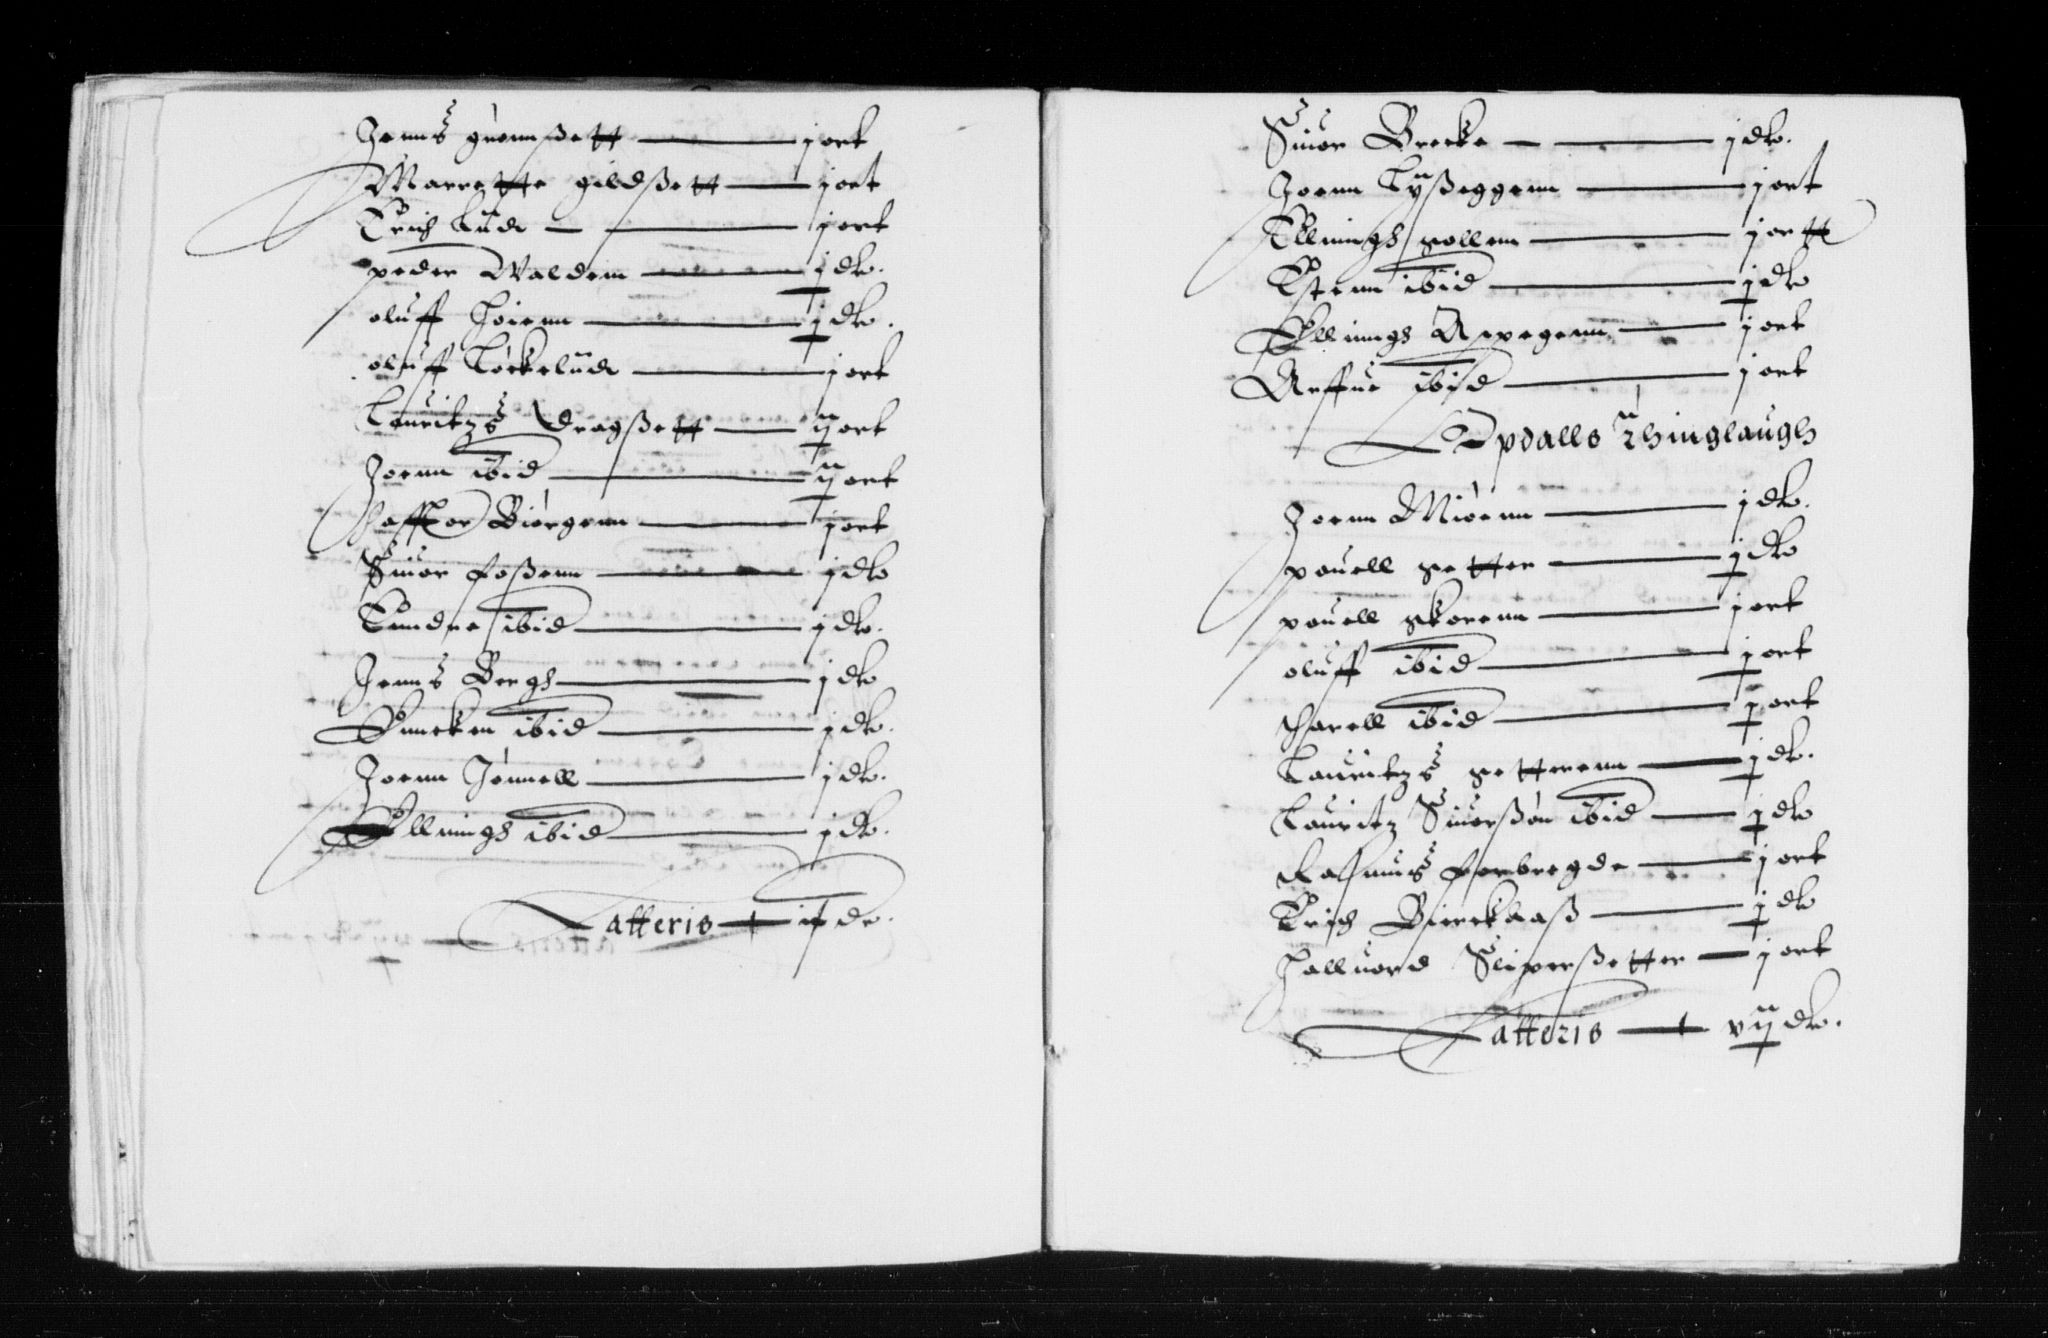 Jenns guennßett — j ort
Marrette gildßett — j ort
Erich lude — j ort
peder Waldem — j dlr.
oluff Hoienn — j dlr.
oluff Løckelude — j ort
Lauritzs Dragßett — ij ort
Joenn ibid — ij ort
Haffuor Biørgenn — j ort
Siuor foßenn — j dlr
Endre ibid — j dlr.
Jenns Bergh — j dlr
Enncken ibid — j dlr.
Joenn Jønnell — j dlr.
Ellingh ibid — j dlr.
Latteris — dlr.
Siuor Brecke — j dlr.
Joenn Lyßeggenn — j ort
Ellingh gollenn — j ortt
Estenn ibid — j dlr
Ellingh Aspegenn — j ort
Arffue ibid — j ort
Opdalls Thinglaugh
Joenn Miøenn — j dlr.
pouell setter — j dlr
pouell skorenn — j ort
oluff ibid — j ort
Harell ibid — j ort
Lauritzs setterenn — j dlr.
Lauritz Siuorßøn ibid — j dlr
Rasmus forbregde — j ort
Erich Bierckaaß — j dlr
Halluord Sliperßetter — j ort
Latteris — vij dlr.